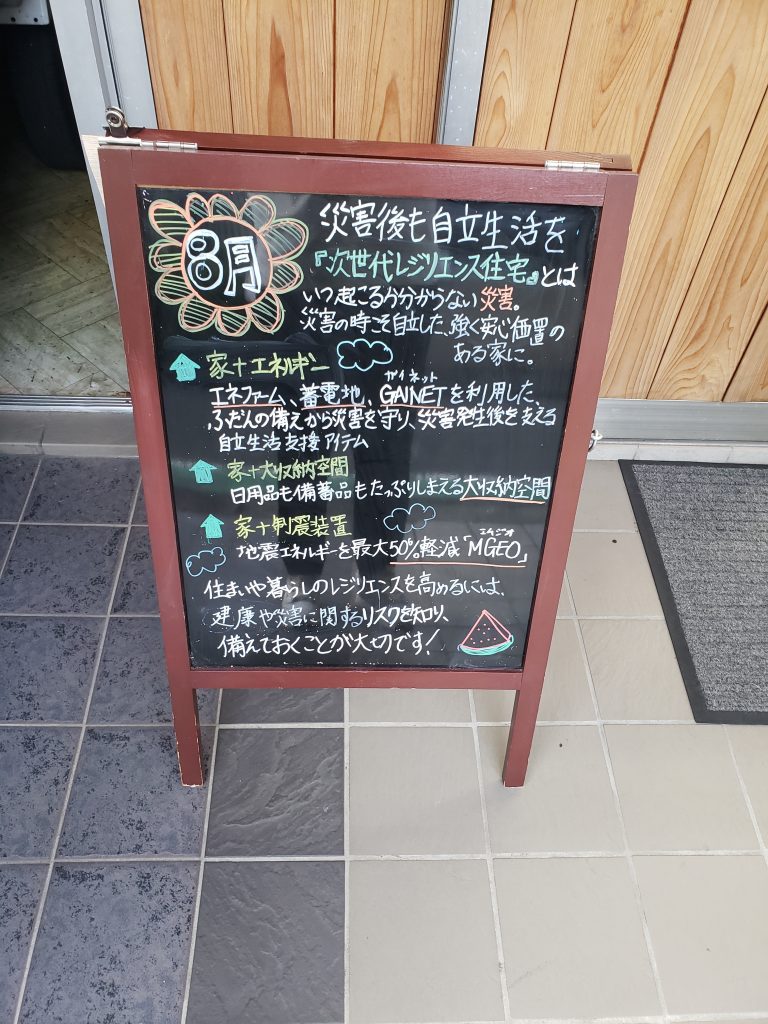 8月
災害後も自立生活を
『次世代レジリエンス住宅』とは
いつ起こるか分からない災害。
災害の時こそ自立した、強く安心価置の
ある家に。
家+エネルギー
ガイネット
エネファーム、蓄電地、GAINETを利用した、
ふだんの備えから災害を守り、災害発生後を支える
自立生活支援アイテム
家+大収納空間
日用品も備蓄品もたっぷりしまえる大収納空間
家+制震装置
エムジオ
地震エネルギーを最大50%軽減「MGEO」
住まいや暮らしのレジリエンスを高めるには、
健康や災害に関するリスクを知り、
備えておくことが大切です!